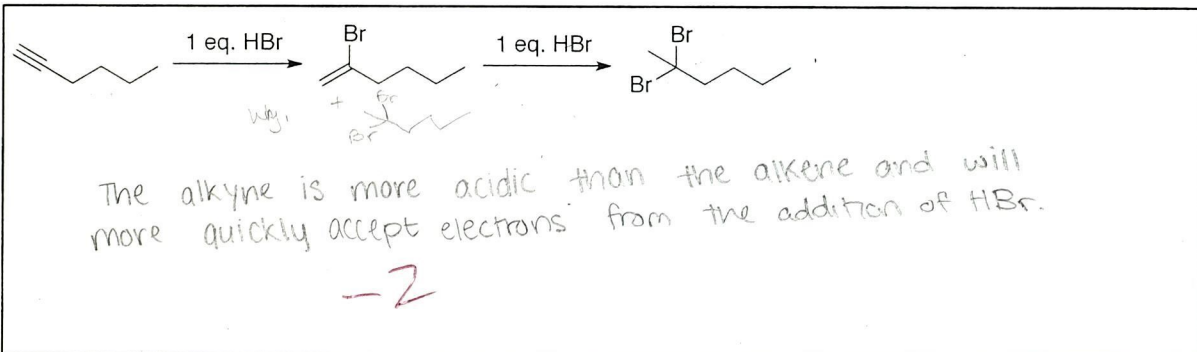 1 eq. HBr
Br
1 eq. HBr
Br
Br
+
Br
Br
The alkyne is more acidic than the alkene and will
more quickly accept electrons from the addition of HBr.
-2